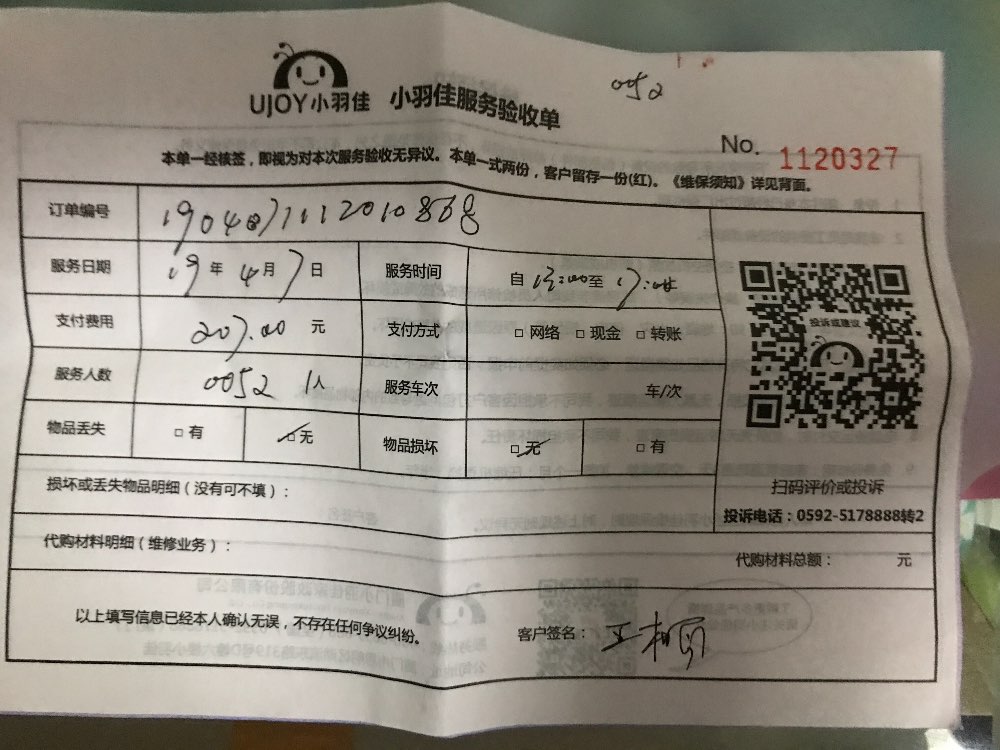 0052
UJOY小羽佳 小羽佳服务验收单
No. 1120327
本单一经核签，即视为对本次服务验收无异议。本单一式两份，客户留存一份(红)。《维保须知》详见背面。
订单编号
服务日期 19 年 4 月 7 日 服务时间 自 13:00 至 17:00
支付费用 207.00 元 支付方式 □ 网络 □ 现金 □ 转账
服务人数 0052 1人 服务车次 车/次
物品丢失 □ 有 □ 无 物品损坏 □ 无 □ 有
投诉或建议
损坏或丢失物品明细（没有可不填）：
扫码评价或投诉
投诉电话：0592-5178888转2
代购材料明细（维修业务）：
代购材料总额： 元
以上填写信息已经本人确认无误，不存在任何争议纠纷。 客户签名：